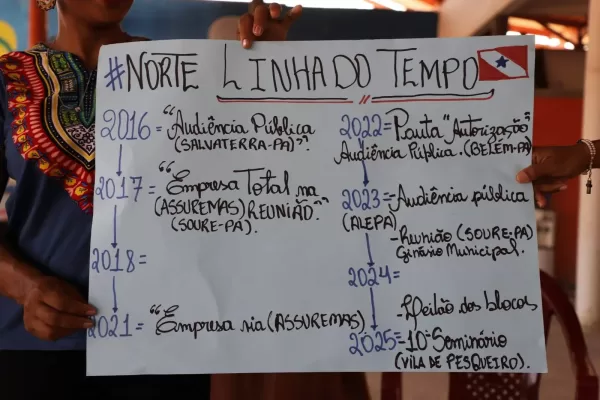 #NORTE LINHA DO TEMPO
2016= "Audiência Pública
(SALVATERRA-PA)?"
2017= "Empresa Total na
(ASSUREMAS) REUNIÃO."
(SOURE-PA).
2018=
2021= "Empresa via (ASSUREMAS)
2022= Pauta "Autorização"
Audiência Pública. (BELÉM-PA)
2023= Audiência pública
(ALEPA)
-Reunião (SOURE-PA)
Ginásio Municipal.
2024=
-Leilão dos blocos
2025=-10º Seminário
(VILA DE PESQUEIRO).